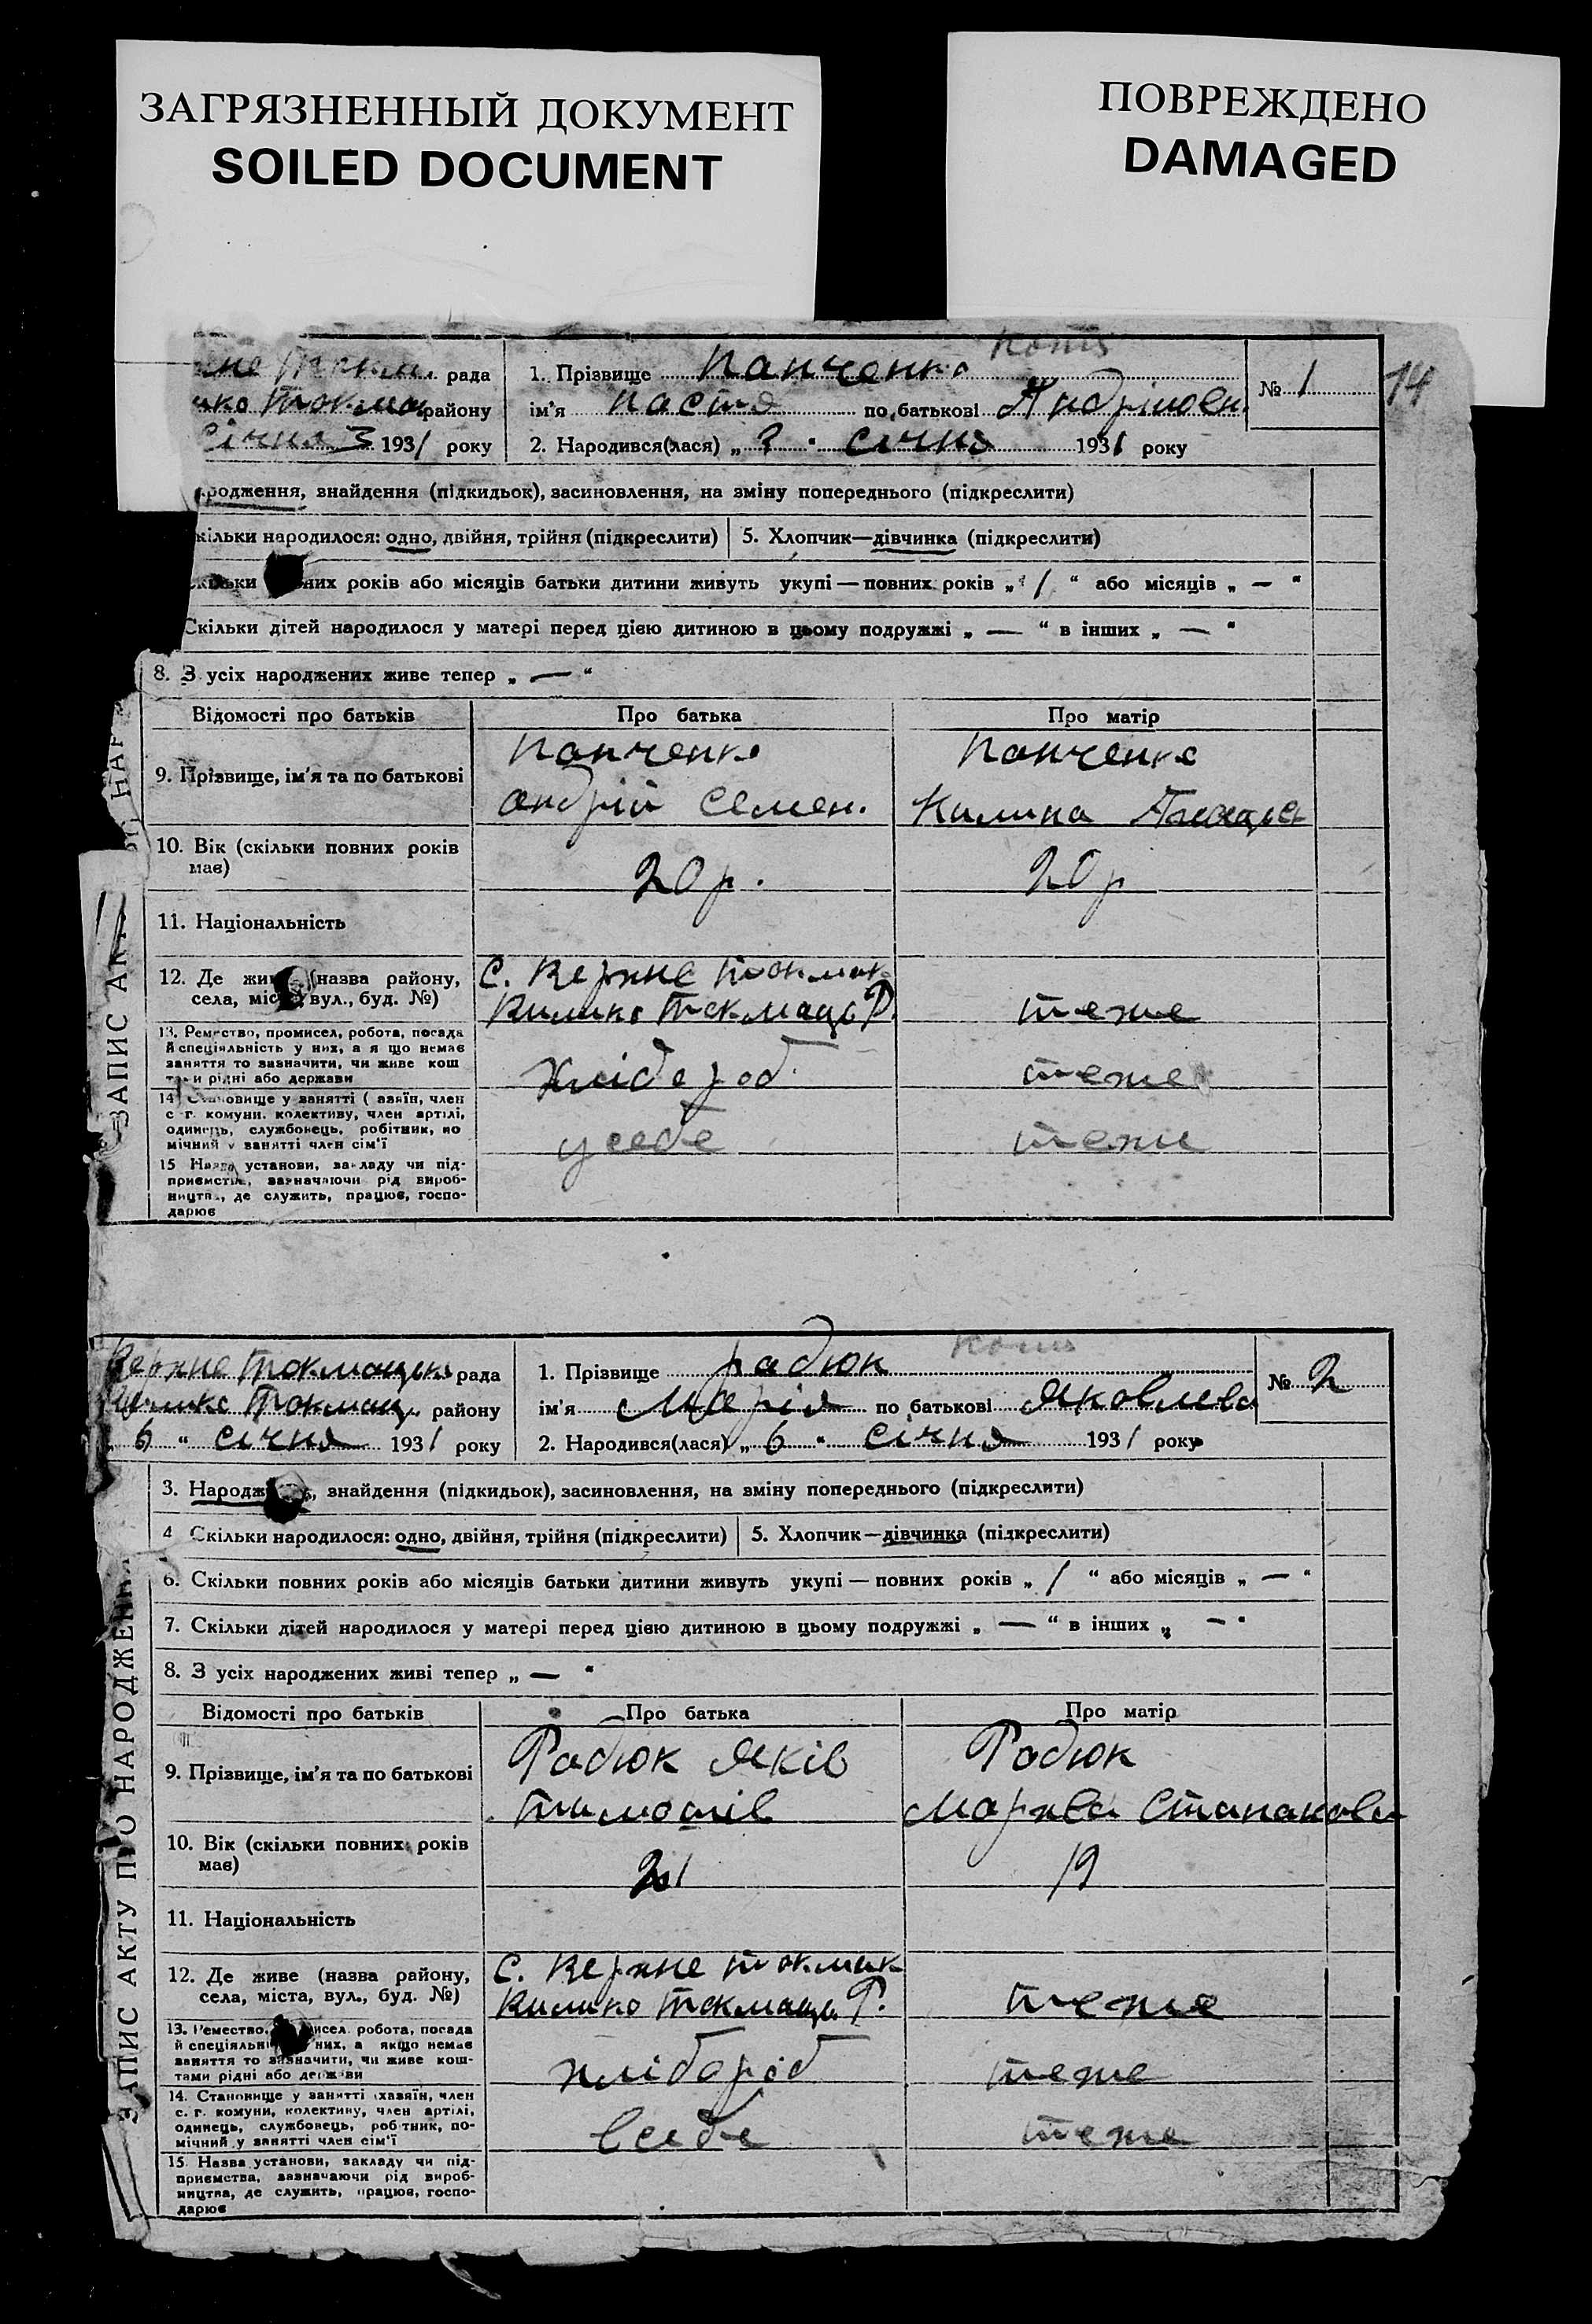 ЗАГРЯЗНЕННЫЙ ДОКУМЕНТ
SOILED DOCUMENT
ПОВРЕЖДЕНО
DAMAGED
рада
району
Січня 3 1931 року
1. Прізвище Панченко
ім'я Настя по батькові
2. Народився(лася) „ 3 " січня 1931 року
№ 1
14
родження, знайдення (підкидьок), засиновлення, на зміну попереднього (підкреслити)
кільки народилося: одно, двійня, трійня (підкреслити)
5. Хлопчик—дівчинка (підкреслити)
них років або місяців батьки дитини живуть укупі — повних років „ 1 “ або місяців „ — “
Скільки дітей народилося у матері перед цією дитиною в цьому подружжі „ — “ в інших „ — “
8. З усіх народжених живе тепер „ — “
Відомості про батьків
Про батька
Про матір
9. Прізвище, ім'я та по батькові
Панченко
Андрій Семен.
Панченко
Килина
10. Вік (скільки повних років
має)
20 р.
20 р
11. Національність
12. Де живе (назва району,
села, міста, вул., буд. №)
с. Верхне Токмак
Токмацк. Р.
теже
13. Ремество, промисел, робота, посада
й спеціяльність у них, а я що немає
заняття то зазначити, чи живе кош
и рідні або держави
хлібороб
теже
14. Становище у занятті ( азяїн, член
с г. комуни. колективу, член артілі,
одинець, службовець, робітник, по
мічний у занятті член сім'ї
у себе
теже
15 Назва установи, закладу чи під-
приємства, зазначаючи рід вироб-
ництва, де служить, працює, госпо-
дарює
ЗАПИС АК
Верхне Токмацька рада
Токмац. району
6 “ січня 1931 року
1. Прізвище Радюк
ім'я Марія по батькові Яковлева
2. Народився(лася) „ 6 “ січня 1931 року
№ 2
3. Народж , знайдення (підкидьок), засиновлення, на зміну попереднього (підкреслити)
4 Скільки народилося: одно, двійня, трійня (підкреслити)
5. Хлопчик—дівчинка (підкреслити)
6. Скільки повних років або місяців батьки дитини живуть укупі — повних років „ 1 “ або місяців „ — “
7. Скільки дітей народилося у матері перед цією дитиною в цьому подружжі „ — “ в інших „ — “
8. З усіх народжених живі тепер „ — “
Відомості про батьків
Про батька
Про матір
9. Прізвище, ім'я та по батькові
Радюк Яків
Тимофів
Радюк
10. Вік (скільки повних років
має)
21
19
11. Національність
12. Де живе (назва району,
села, міста, вул., буд. №)
с. Верхне Токмак
Токмацк. Р.
теже
13. Ремество, робота, посада
й спеціяльні них, а якщо немає
заняття то зазначити, чи живе кош-
тами рідні або держави
хлібороб
теже
14. Становище у занятті хазяїн, член
с. г. комуни, колективу, член артілі,
одинець, службовець, робітник, по-
мічний у занятті член сім'ї
в себе
теже
15 Назва установи, закладу чи під-
приємства, зазначаючи рід вироб-
ництва, де служить, працює, госпо-
дарює
ЗАПИС АКТУ ПРО НАРОДЖЕННЯ